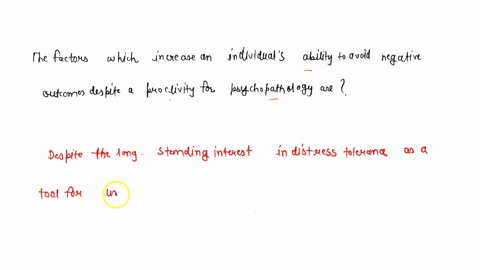 The factors which increase an individual's ability to avoid negative
outcomes despite a proclivity for psychopathology are ?
Despite the long-standing interest in distress tolerance as a
tool for un